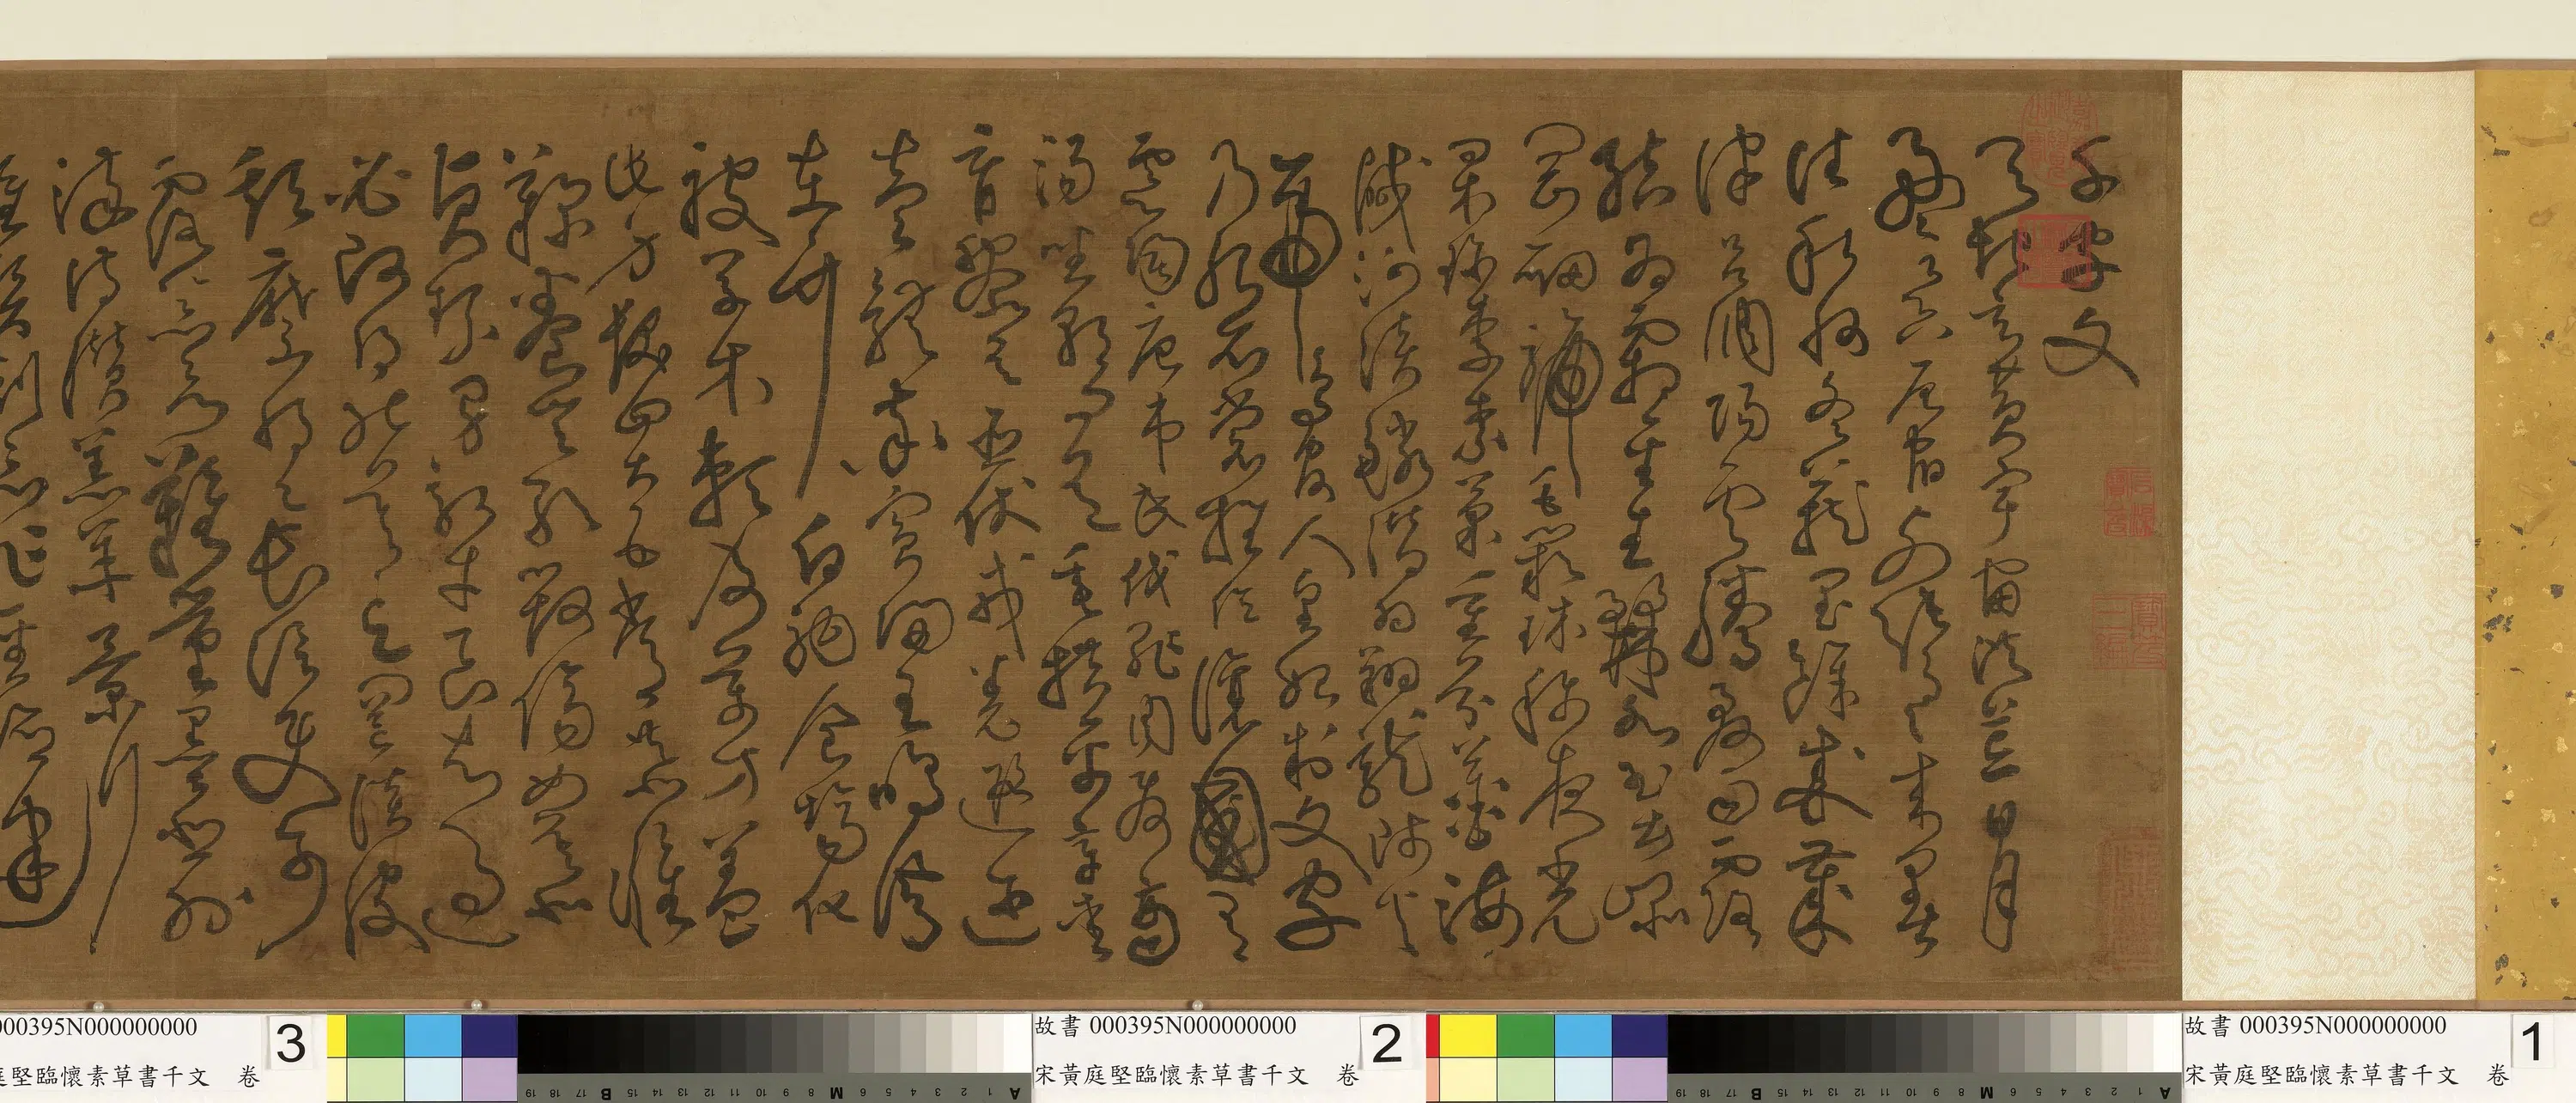 千字文
天地玄黃宇宙洪荒日月
盈昃辰宿列張寒來暑
往秋收冬藏閏餘成歲
律呂調陽雲騰致雨露
結為霜金生麗水玉出崑
岡劍號巨闕珠稱夜光
果珍李柰菜重芥薑海
鹹河淡鱗潛羽翔龍師火
帝鳥官人皇始制文字
乃服衣裳推位讓國有
虞陶唐弔民伐罪周發商
湯坐朝問道垂拱平章愛
育黎首臣伏戎羌遐邇
壹體率賓歸王鳴鳳
在竹白駒食場化
被草木賴及萬方蓋
此身髮四大五常恭惟
鞠養豈敢毀傷女慕
貞絜男效才良知過
必改得能莫忘罔談彼
短靡恃己長信使可
覆器欲難量墨悲絲
染詩讚羔羊景行
維賢剋念作聖德建
故書 000395N000000000
宋黃庭堅臨懷素草書千文 卷
1
故書 000395N000000000
宋黃庭堅臨懷素草書千文 卷
2
000395N000000000
庭堅臨懷素草書千文 卷
3